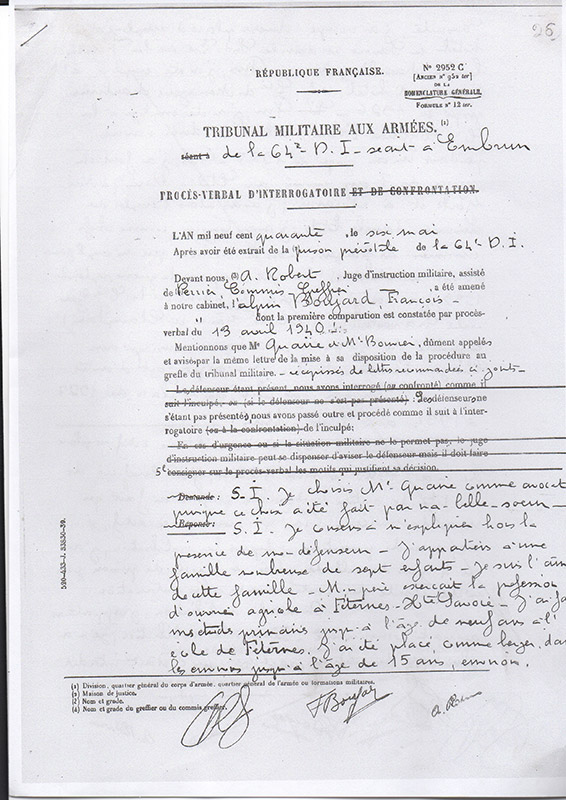 26
RÉPUBLIQUE FRANÇAISE.
N° 2952 C
[ANCIEN N° 952 ter]
DE LA
NOMENCLATURE GÉNÉRALE.
FORMULE N° 12 ter.
TRIBUNAL MILITAIRE AUX ARMÉES. (1)
séant à de la 64e D. I. séant à Embrun
PROCÈS-VERBAL D'INTERROGATOIRE ET DE CONFRONTATION.
L'AN mil neuf cent quarante, le six mai
Après avoir été extrait de la prison prévôtale de la 64e D. I.
Devant nous, (3) A. Robert, Juge d'instruction militaire, assisté
de Perrier, Commis Greffier, a été amené
à notre cabinet, l'alpin Boujard François
dont la première comparution est constatée par procès-
verbal du 13 avril 1940.
Mentionnons que Me Quaire et Me, dûment appelés
et avisés par la même lettre de la mise à sa disposition de la procédure au
greffe du tribunal militaire. - récépissés de lettres recommandées ci-joints -
Le défenseur étant présent, nous avons interrogé (ou confronté) comme il
suit l'inculpé, ou (si le défenseur ne s'est pas présenté) : Les défenseurs ne
s'étant pas présentés, nous avons passé outre et procédé comme il suit à l'inter-
rogatoire (ou à la confrontation) de l'inculpé:
En cas d'urgence ou si la situation militaire ne le permet pas, le juge
d'instruction militaire peut se dispenser d'aviser le défenseur mais il doit faire
consigner sur le procès-verbal les motifs qui justifient sa décision.
Demande : S. I. Je choisis Me Quaire comme avocat
puisque ce choix a été fait par ma belle-soeur -
Réponse : S. I. Je consens à m'expliquer hors la
présence de mon défenseur - J'appartiens à une
famille nombreuse de sept enfants - Je suis l'aîné
de cette famille - Mon père exerçait la profession
d'ouvrier agricole à Féternes - Hte Savoie - J'ai fait
mes études primaires jusqu'à l'âge de neuf ans à l'
école de Féternes. J'ai été placé, comme berger, dans
les environs jusqu'à l'âge de 15 ans, environ.
(1) Division, quartier général du corps d'armée, quartier général de l'armée ou formations militaires.
(2) Maison de justice.
(3) Nom et grade.
(4) Nom et grade du greffier ou du commis greffier.